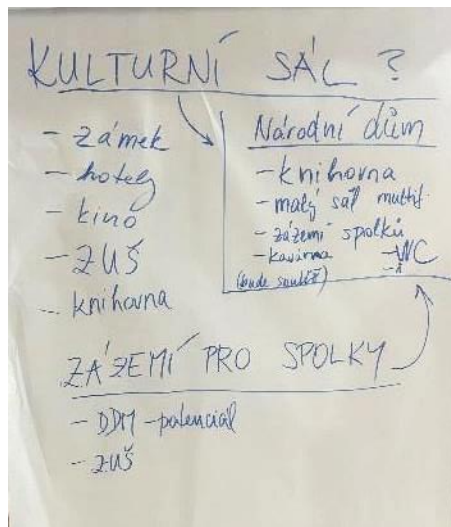 KULTURNÍ SÁL ?
- zámek
- hotely
- kino
- ZUŠ
- knihovna
Národní dům
- knihovna
- malý sál multif.
- zázemí spolků
- kavárna
(bude soutěž)
- WC
ZÁZEMÍ PRO SPOLKY
- DDM - potenciál
- ZUŠ